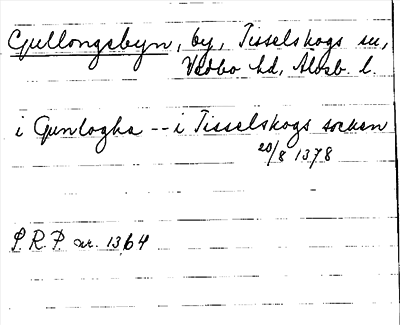 Gullongsbyn, by, Tisselskogs sn,
Vedbo hd, Älvsb. l.
i Gunlogha -- i Tisselskogs socken
20/8 1378
S. R. P. nr. 1364